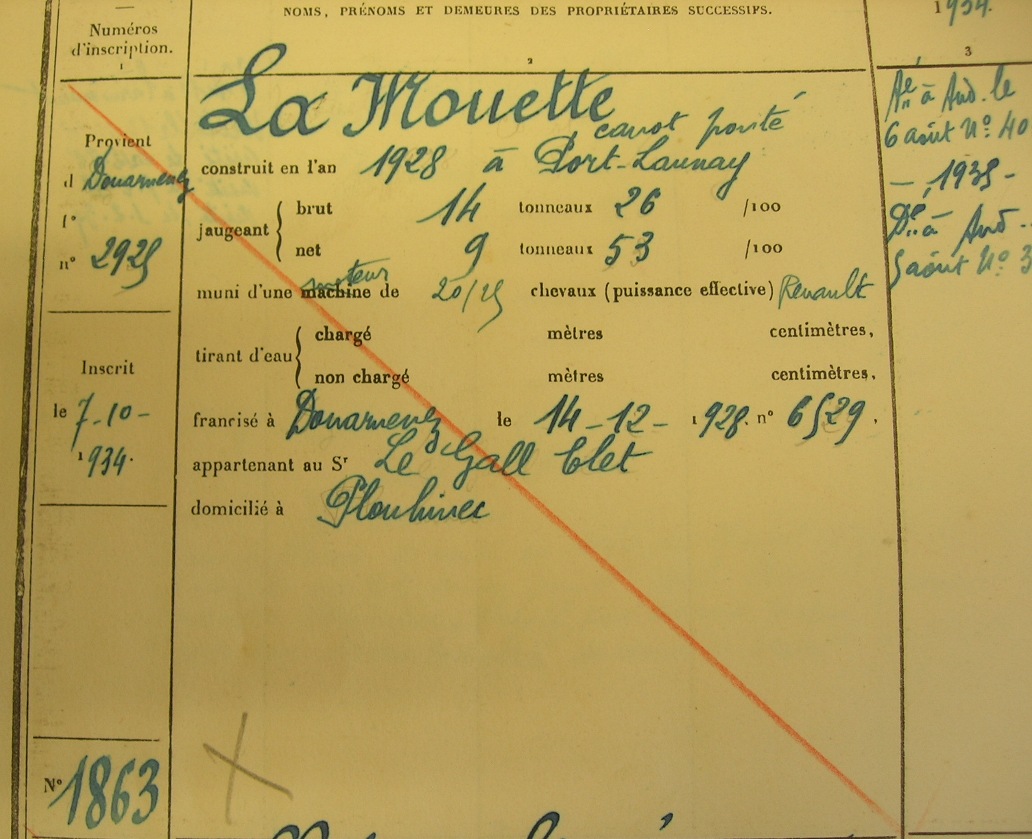 NOMS, PRÉNOMS ET DEMEURES DES PROPRIÉTAIRES SUCCESSIFS.
Numéros
d'inscription.
1
2
1934.
3
La Mouette
canot ponté
construit en l'an 1928 à Port-Launay
jaugeant
brut 14 tonneaux 26 /100
net 9 tonneaux 53 /100
moteur
muni d'une machine de 20/25 chevaux (puissance effective) Renault
tirant d'eau
chargé mètres centimètres,
non chargé mètres centimètres,
francisé à Douarnenez le 14-12- 1928. n° 6529,
appartenant au Sr Le Gall Clet
domicilié à Plouhinec
Provient
d Douarnenez
f°
n° 2925
Inscrit
le 7-10-
1934.
N° 1863
à Aud. le
6 août N° 40
1935-
à Aud
5 août N° 3